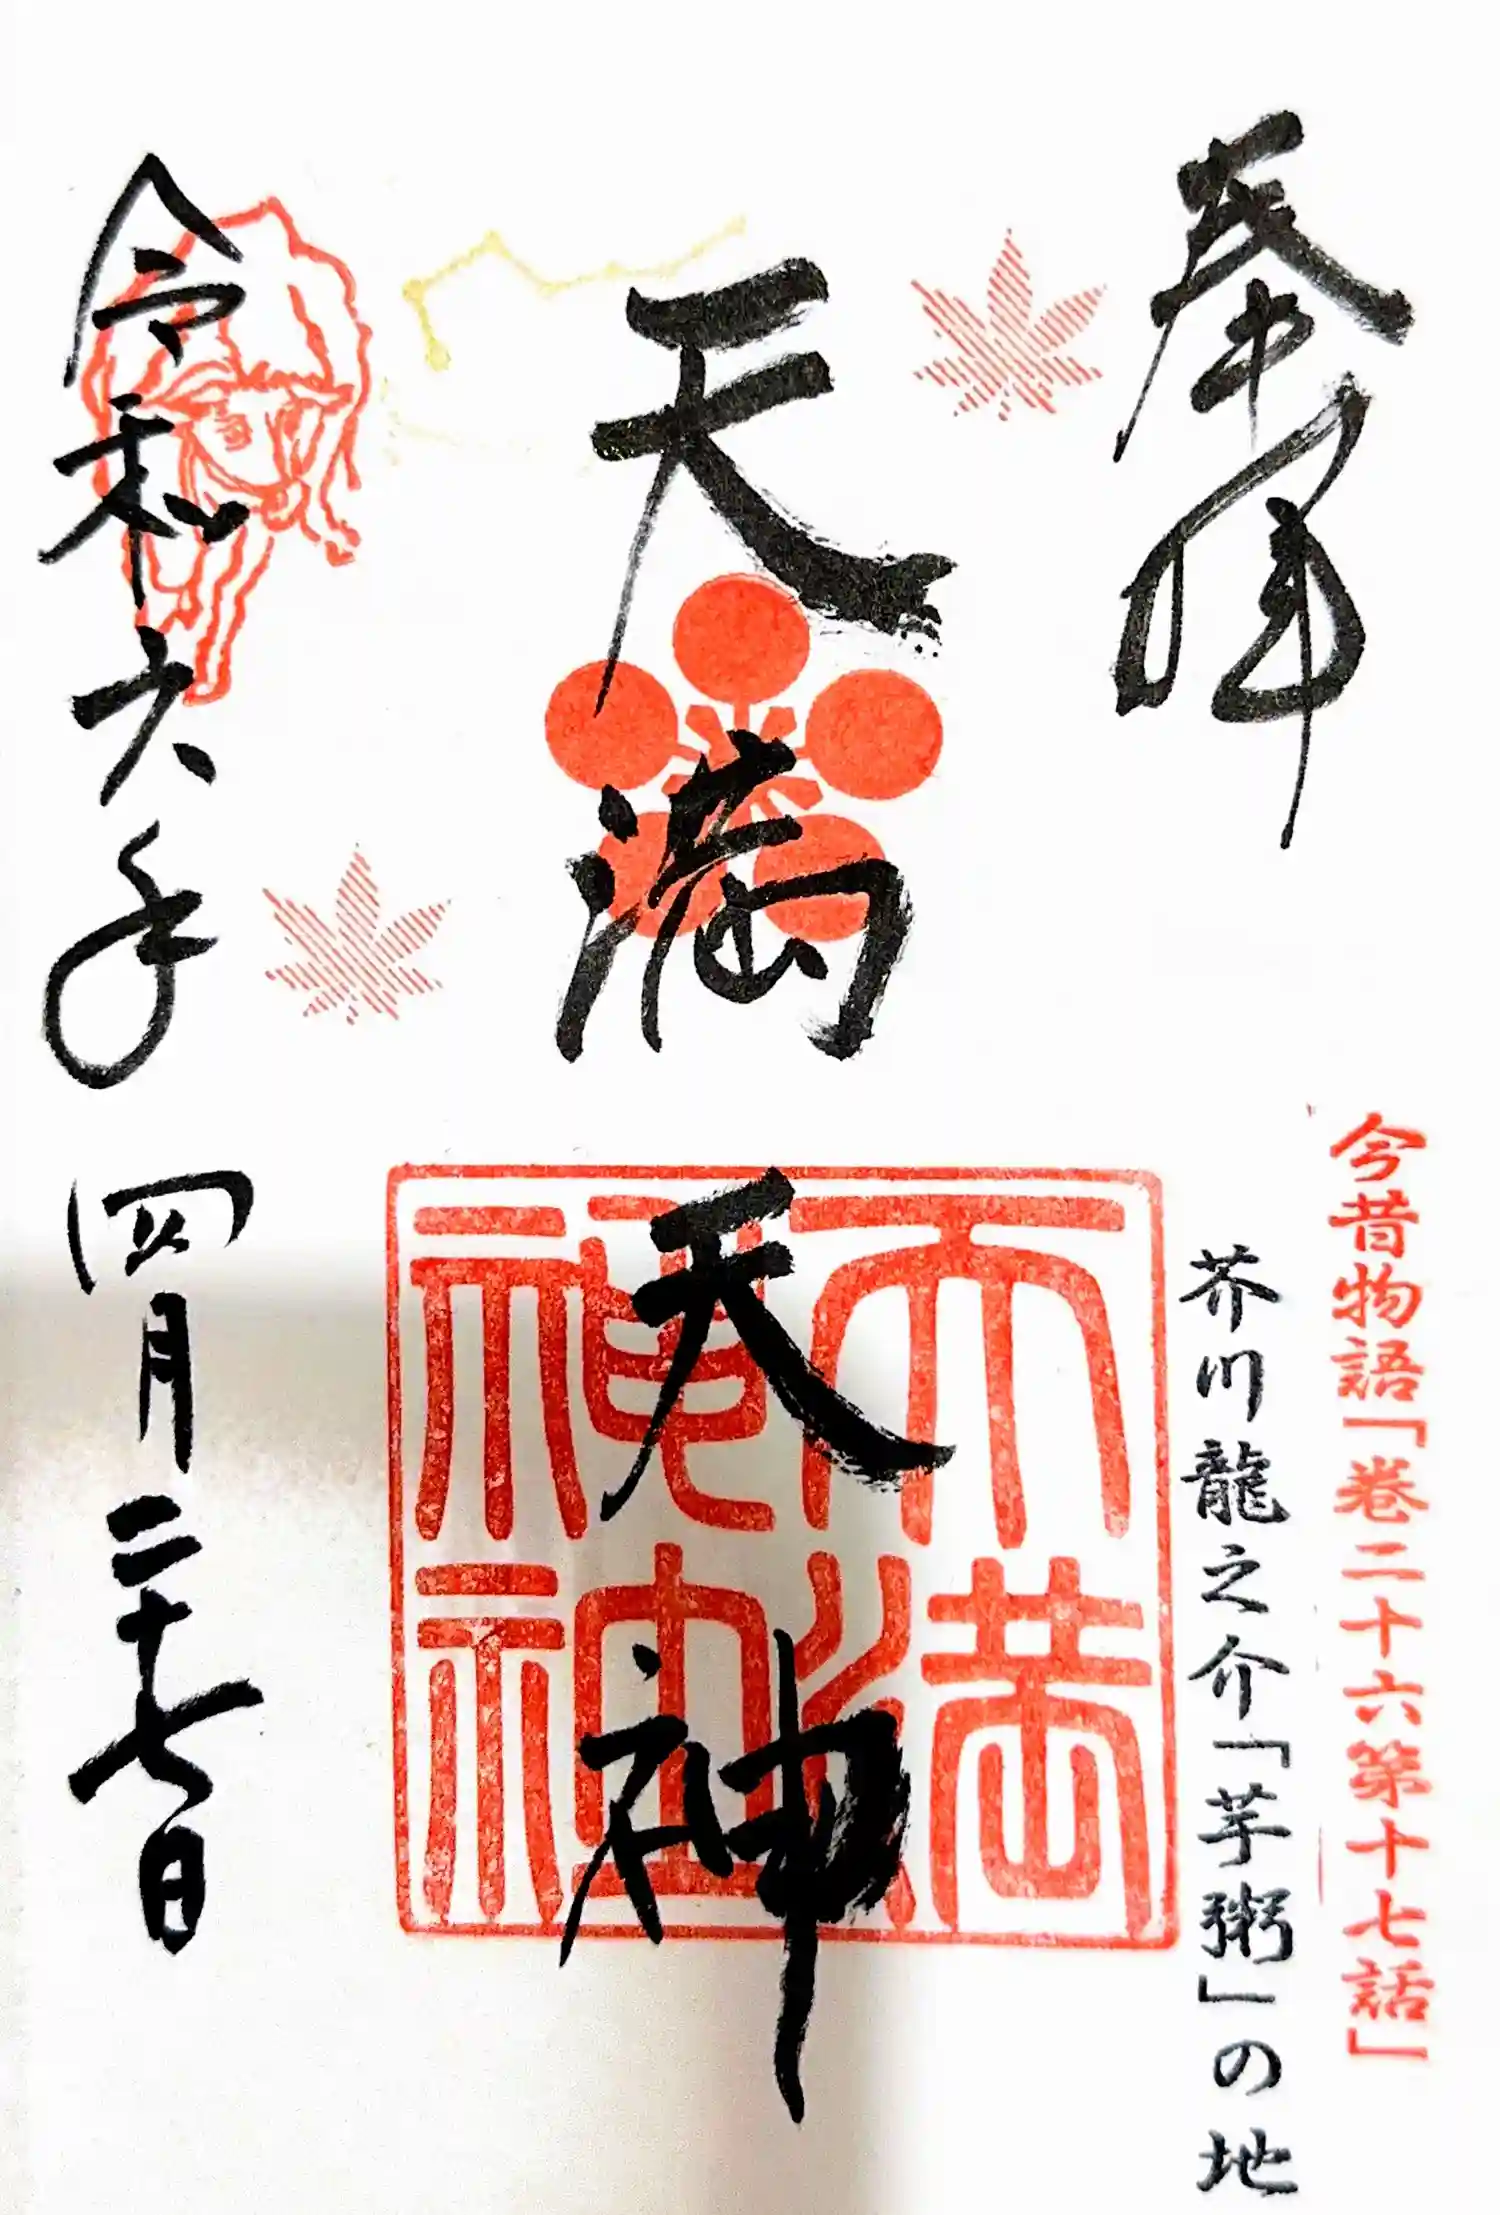 奉拝
今昔物語『巻二十六第十七話』
芥川龍之介「芋粥」の地
天満天神
天満神社
令和六年四月二十七日